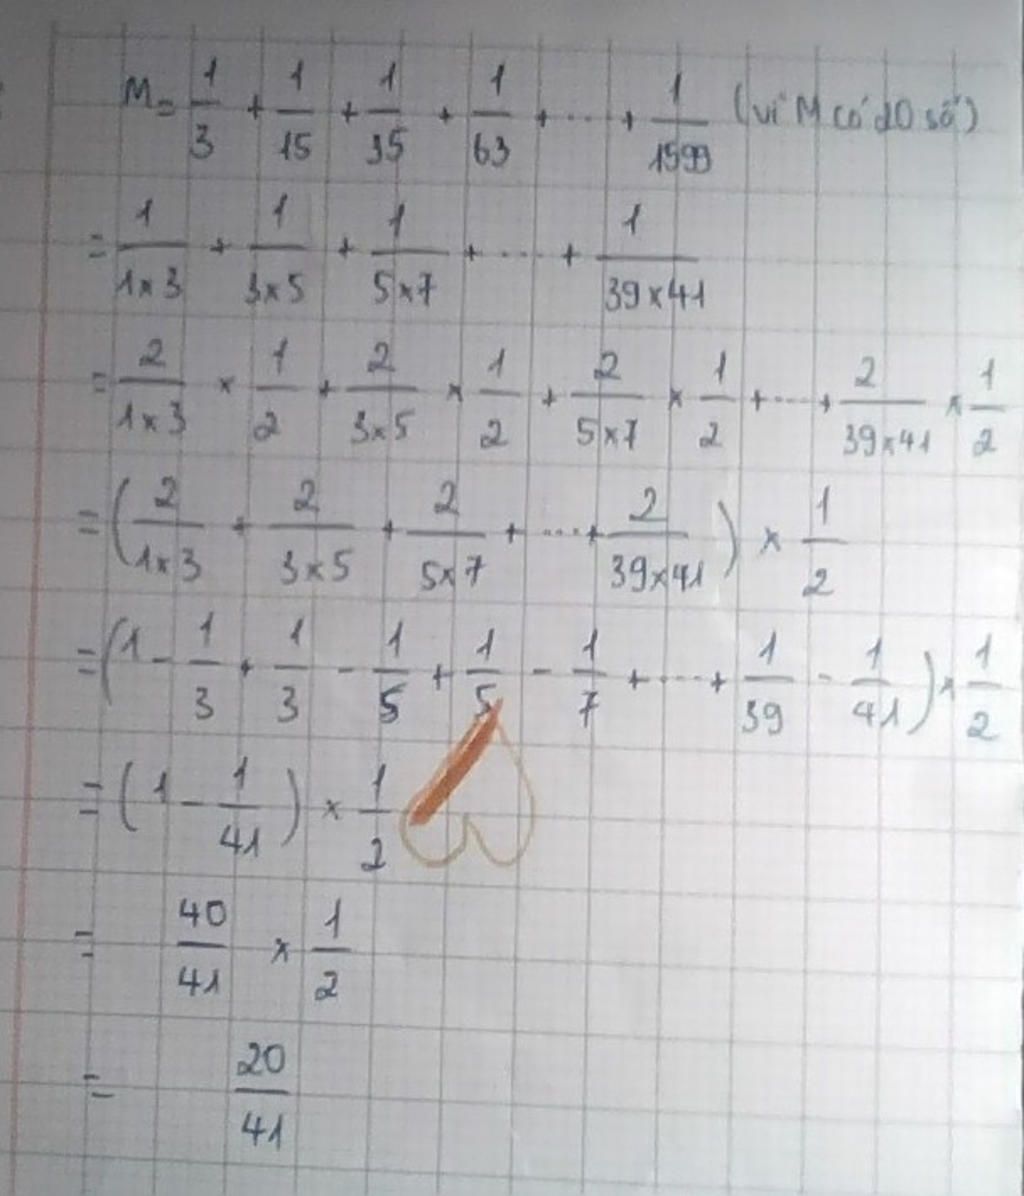 M = 1/3 + 1/15 + 1/35 + 1/63 + ... + 1/1599 (vì M có 20 số)
= 1/(1×3) + 1/(3×5) + 1/(5×7) + ... + 1/(39×41)
= 2/(1×3) × 1/2 + 2/(3×5) × 1/2 + 2/(5×7) × 1/2 + ... + 2/(39×41) × 1/2
= (2/(1×3) + 2/(3×5) + 2/(5×7) + ... + 2/(39×41)) × 1/2
= (1 - 1/3 + 1/3 - 1/5 + 1/5 - 1/7 + ... + 1/39 - 1/41) × 1/2
= (1 - 1/41) × 1/2
= 40/41 × 1/2
= 20/41